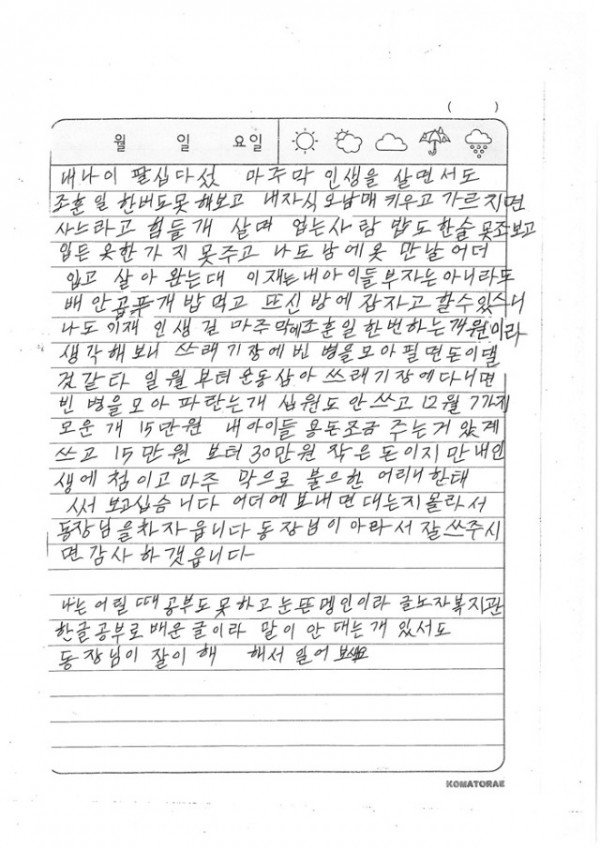 ( )
월 일 요일
내나이 팔십다섯 마주막 인생을 살면서도
조훈일 한버도못해보고 내자식 오남매 키우고 가르치면
사느라고 힘들개 살며 업는사람 밥도 한술 못조보고
입든 옷한가지 못주고 나도 남에옷 만날어더
입고 살아 왔는대 이재는내아이들부자는아니라도
배안곱푸개밥먹고 뜨신방에잠자고할수있스니
나도 이재 인생길 마주막에조훈일한번하는개원이라
생각해보니 쓰래기장에빈병을모아필면돈이댈
것같다 일월부터운동삼아쓰래기장에다니면
빈병을모아파란는개 십원도안쓰고12월7가지
모운개15만원 내아이들용돈조금주는거았계
쓰고15만원보터30만원작은돈이지만내인
생에첨이고마주막으로불으한어리니한태
써보고십습니다어더에보내면대는지몰라서
동장님을차자읍니다동장님이아라서잘쓰주시
면감사하갯읍니다
나는어릴때공부도못하고눈뜬멩인이라글노자복지관
한글공부로배운글이라말이안대는개있서도
동장님이잘이해 해서일어보세요
KOMATORAE